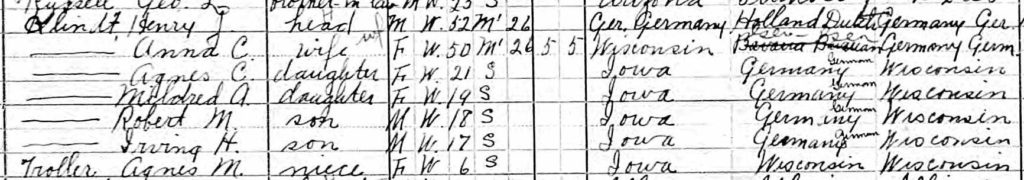 Russell Geo. brother in law M W. 23 S
Henry J head M W. 52 M1 26 Ger. Germany Holland Dutch Germany Ger.
Anna C. wife F W. 50 M1 26 5 5 Wisconsin Bavaria Bavarian Germany Germ.
Agnes C. daughter F W. 21 S Iowa Germany German Wisconsin
Mildred A. daughter F W. 19 S Iowa Germany German Wisconsin
Robert M. son M W. 18 S Iowa Germany German Wisconsin
Irving H. son M W. 17 S Iowa Germany German Wisconsin
Troller Agnes M. niece F W 6 S Iowa Wisconsin Wisconsin